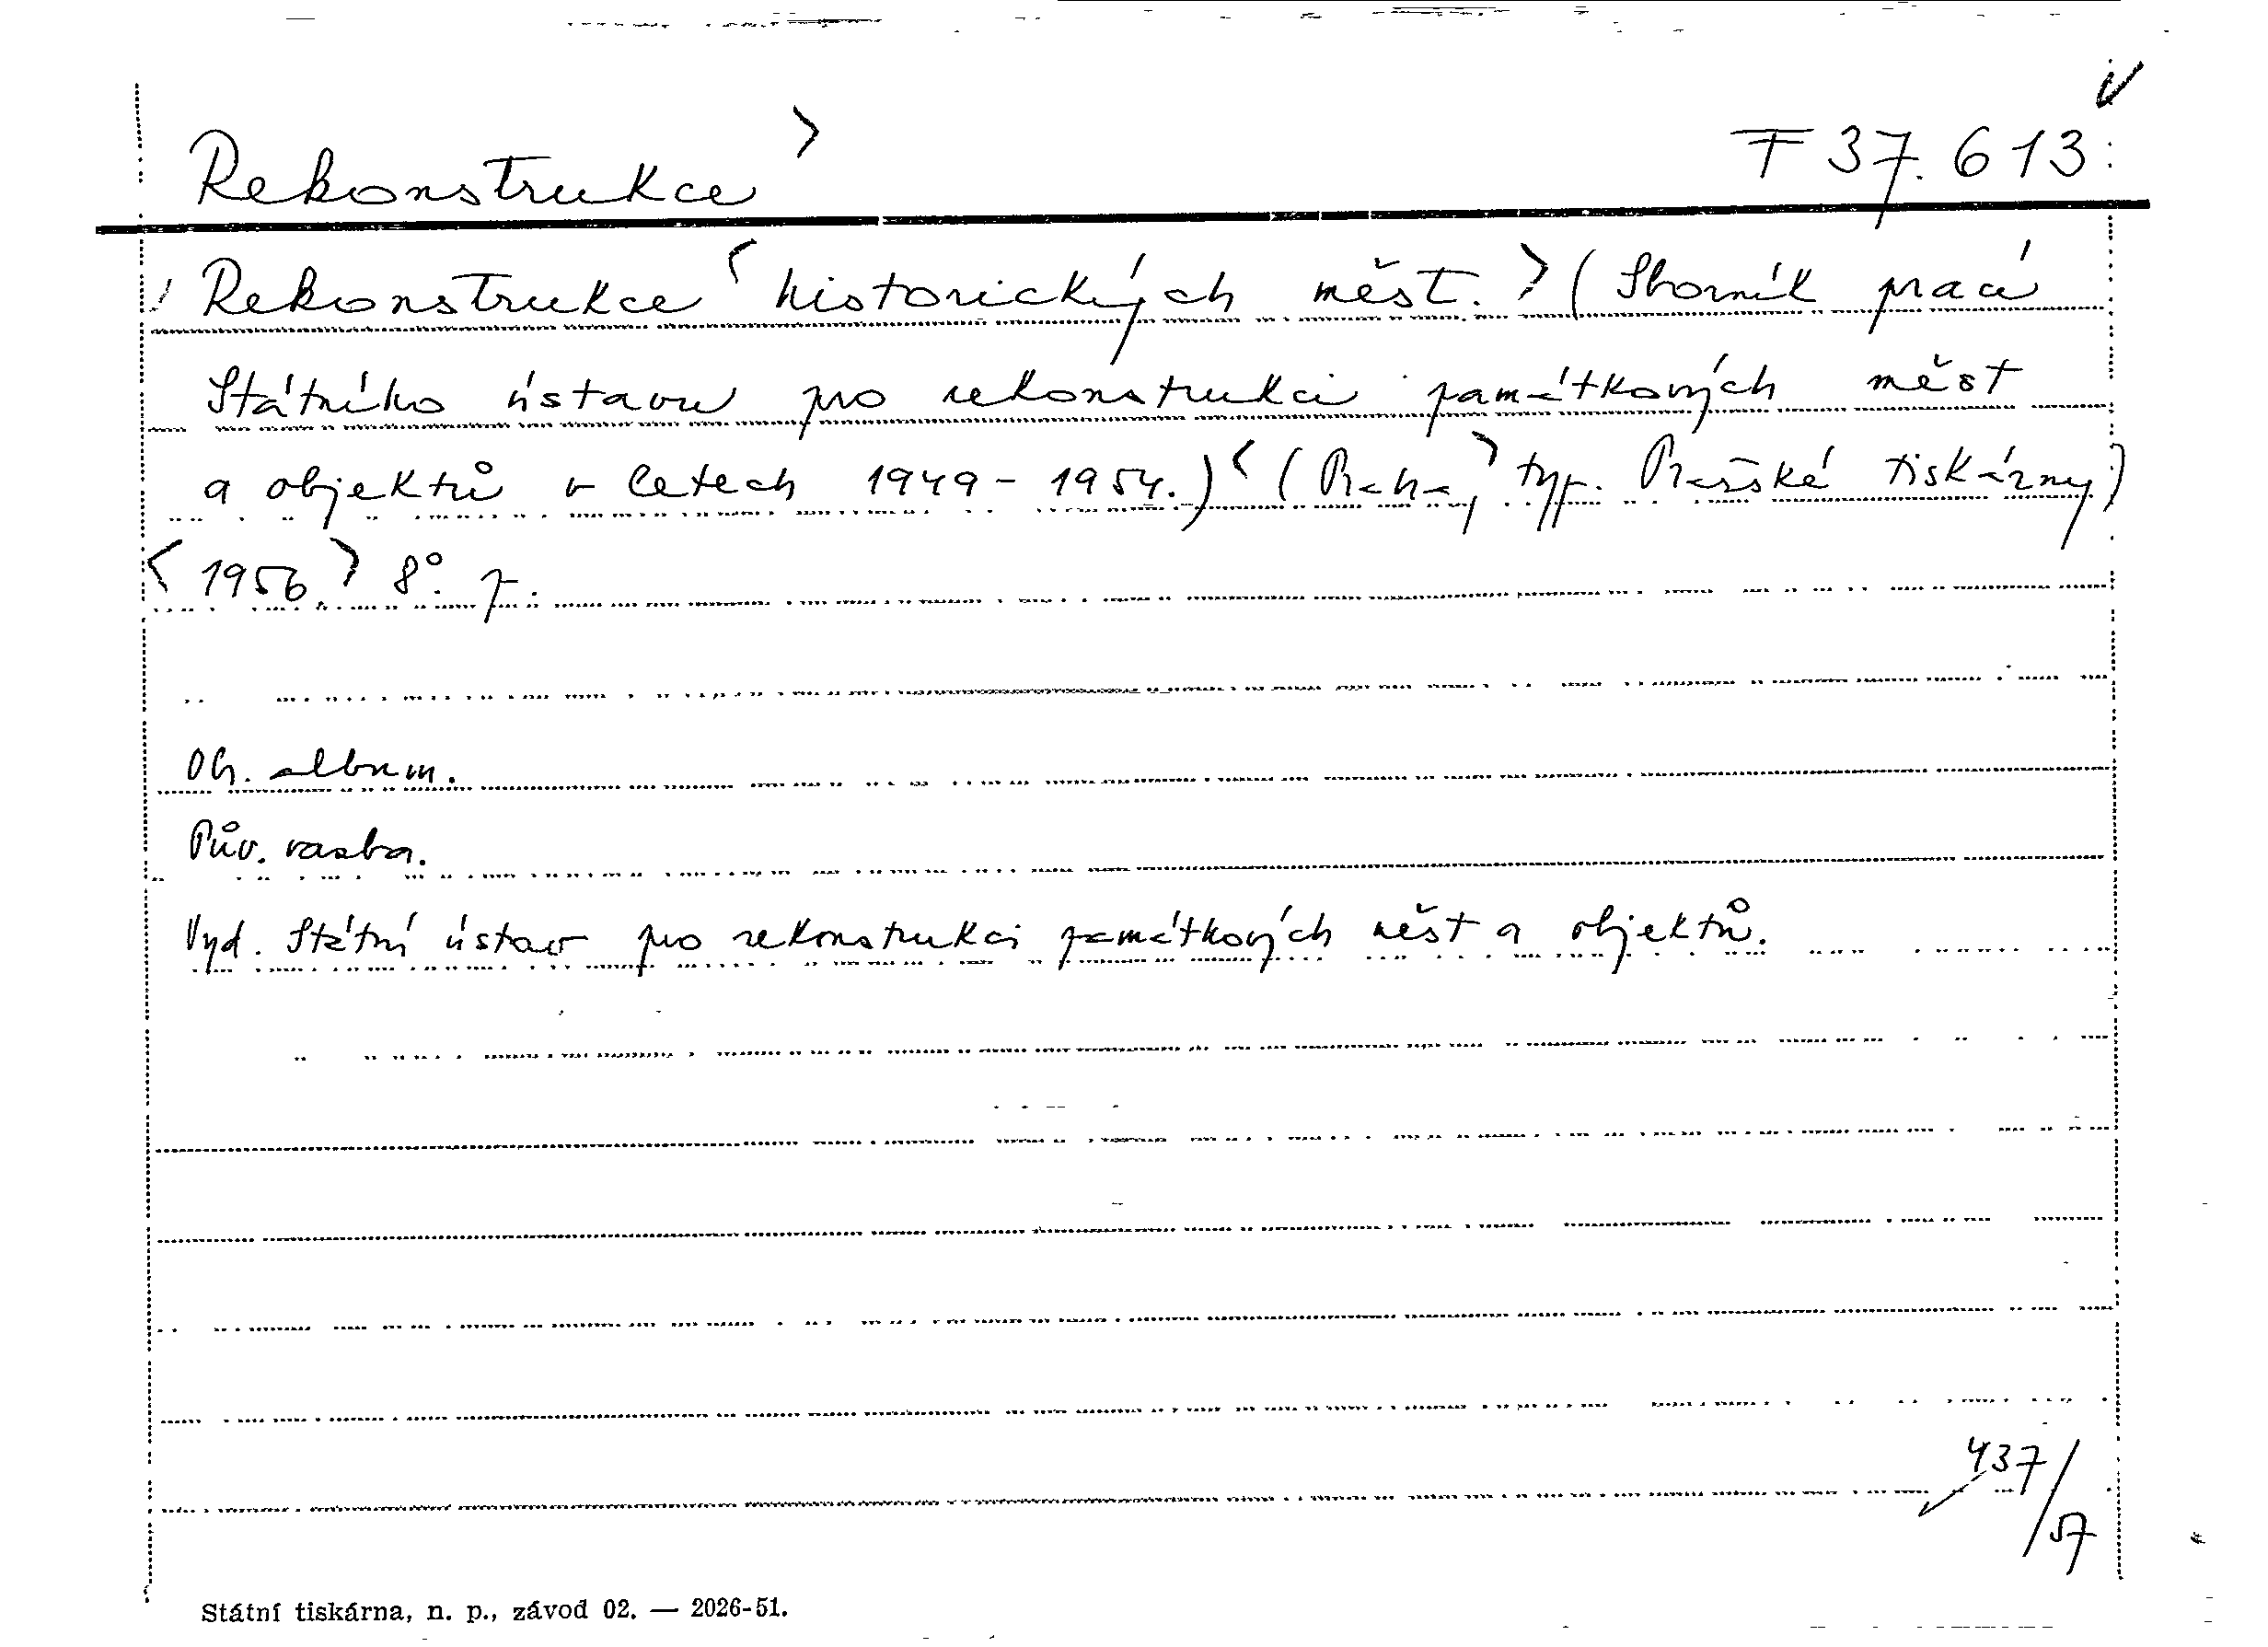 Rekonstrukce > F 37.613
Rekonstrukce < historických měst. > (Sborník prací
Státního ústavu pro rekonstrukci památkových měst
a objektů v letech 1949-1954.) < (Praha, > typ. Pražské tiskárny)
< 1956. > 8°. p.
Ob. album.
Pův. vazba.
Vyd. Státní ústav pro rekonstrukci památkových měst a objektů.
437/57
Státní tiskárna, n. p., závod 02. — 2026-51.